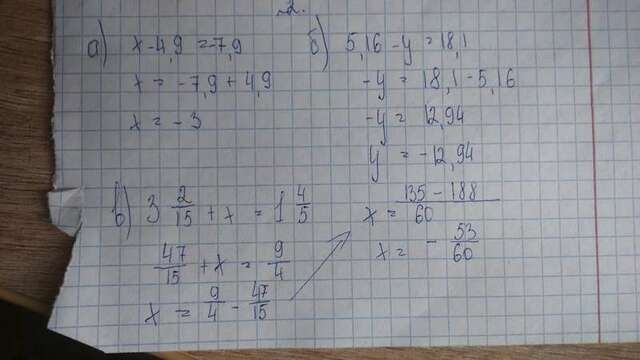 а) x-4,9 =-7,9
x = -7,9+4,9
x = -3
б) 5,16-y=18,1
-y = 18,1-5,16
-y = 12,94
y = -12,94
в) 3 2/15 + x = 1 4/5
47/15 + x = 9/4
x = 9/4 - 47/15
x = 135-188/60
x = - 53/60